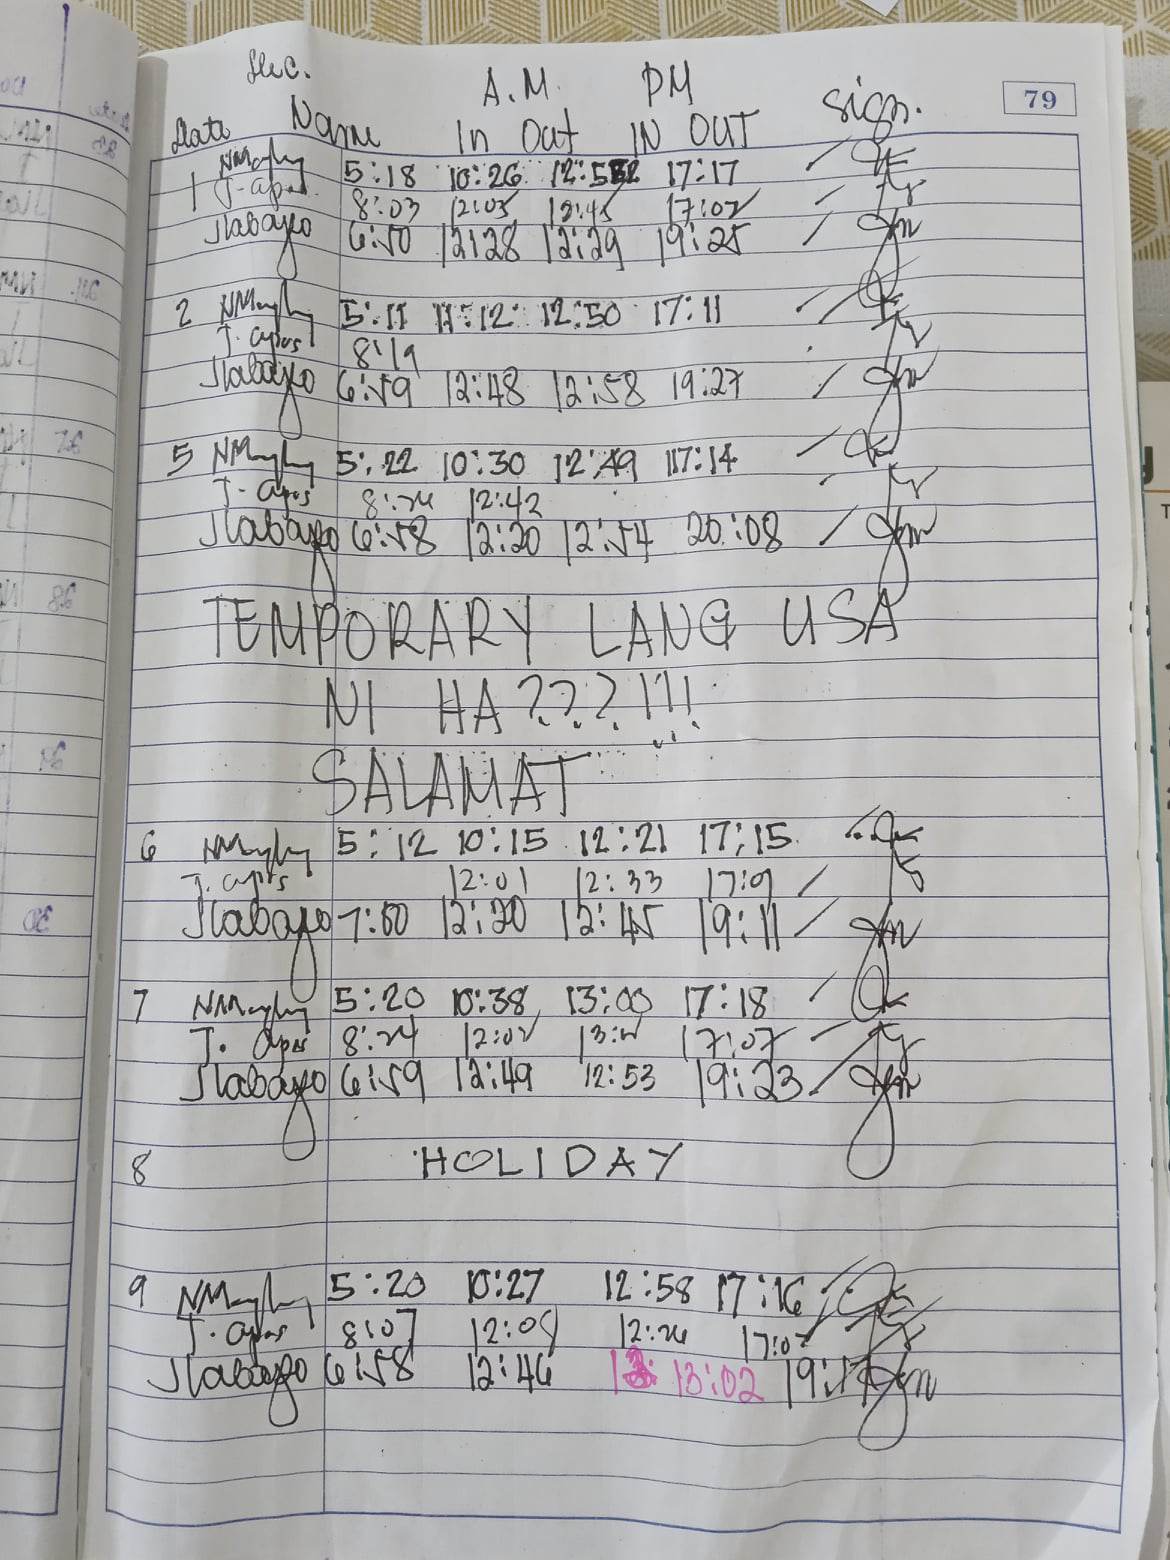 Dec.
A.M. PM
79
Date Name In Out IN OUT Sign.
1 5:18 10:26 12:52 17:17
8:03 12:03 12:45 17:02
Jlabayo 6:50 12:28 12:29 19:25
2 5:11 11:12 12:50 17:11
J. apus 8:19
Jlabayo 6:59 12:48 12:58 19:27
5 5:22 10:30 12:49 17:14
J. apus 8:24 12:42
Jlabayo 6:58 12:20 12:54 20:08
TEMPORARY LANG USA
NI HA???!!!
SALAMAT
6 5:12 10:15 12:21 17:15
J. apus 12:01 12:33 17:09
Jlabayo 7:00 12:20 12:45 19:11
7 5:20 10:38 13:00 17:18
J. apus 8:24 12:02 17:07
Jlabayo 6:59 12:49 12:53 19:23
8 HOLIDAY
9 5:20 10:27 12:58 17:16
J. apus 8:07 12:09 12:26 17:07
Jlabayo 6:58 12:46 13:02 19:17